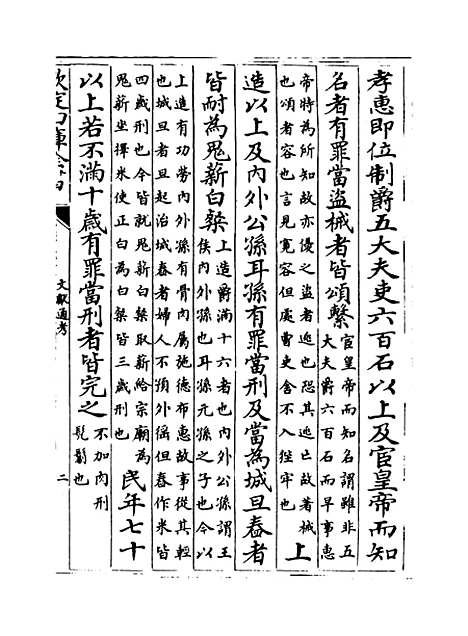 孝惠即位制爵五大夫吏六百石以上及官皇帝而知
名者有罪當盜械者皆頌繫
官皇帝而知名謂雖非五
大夫爵六百石而早事惠
帝特為所知故亦優之盜者逃也恐其逃亡故著械
也頌者容也言見寛容但處曹吏舍不入狴牢也
上
造以上及内外公孫耳孫有罪當刑及當為城旦舂者
皆耐為鬼薪白粲
上造爵滿十六者也内外公孫謂王
侯内外孫也耳孫元孫之子也今以
上造有功勞内外孫有骨肉屬施德布惠故事從其輕
也城旦者旦起治城舂者婦人不預外徭但舂作米皆
四歲刑也今皆就鬼薪白粲取薪給宗廟為
鬼薪坐擇米使正白為白粲皆三歲刑也
民年七十
以上若不滿十歲有罪當刑者皆完之
不加肉刑
髠鬄也
欽定四庫全書
文獻通考
二